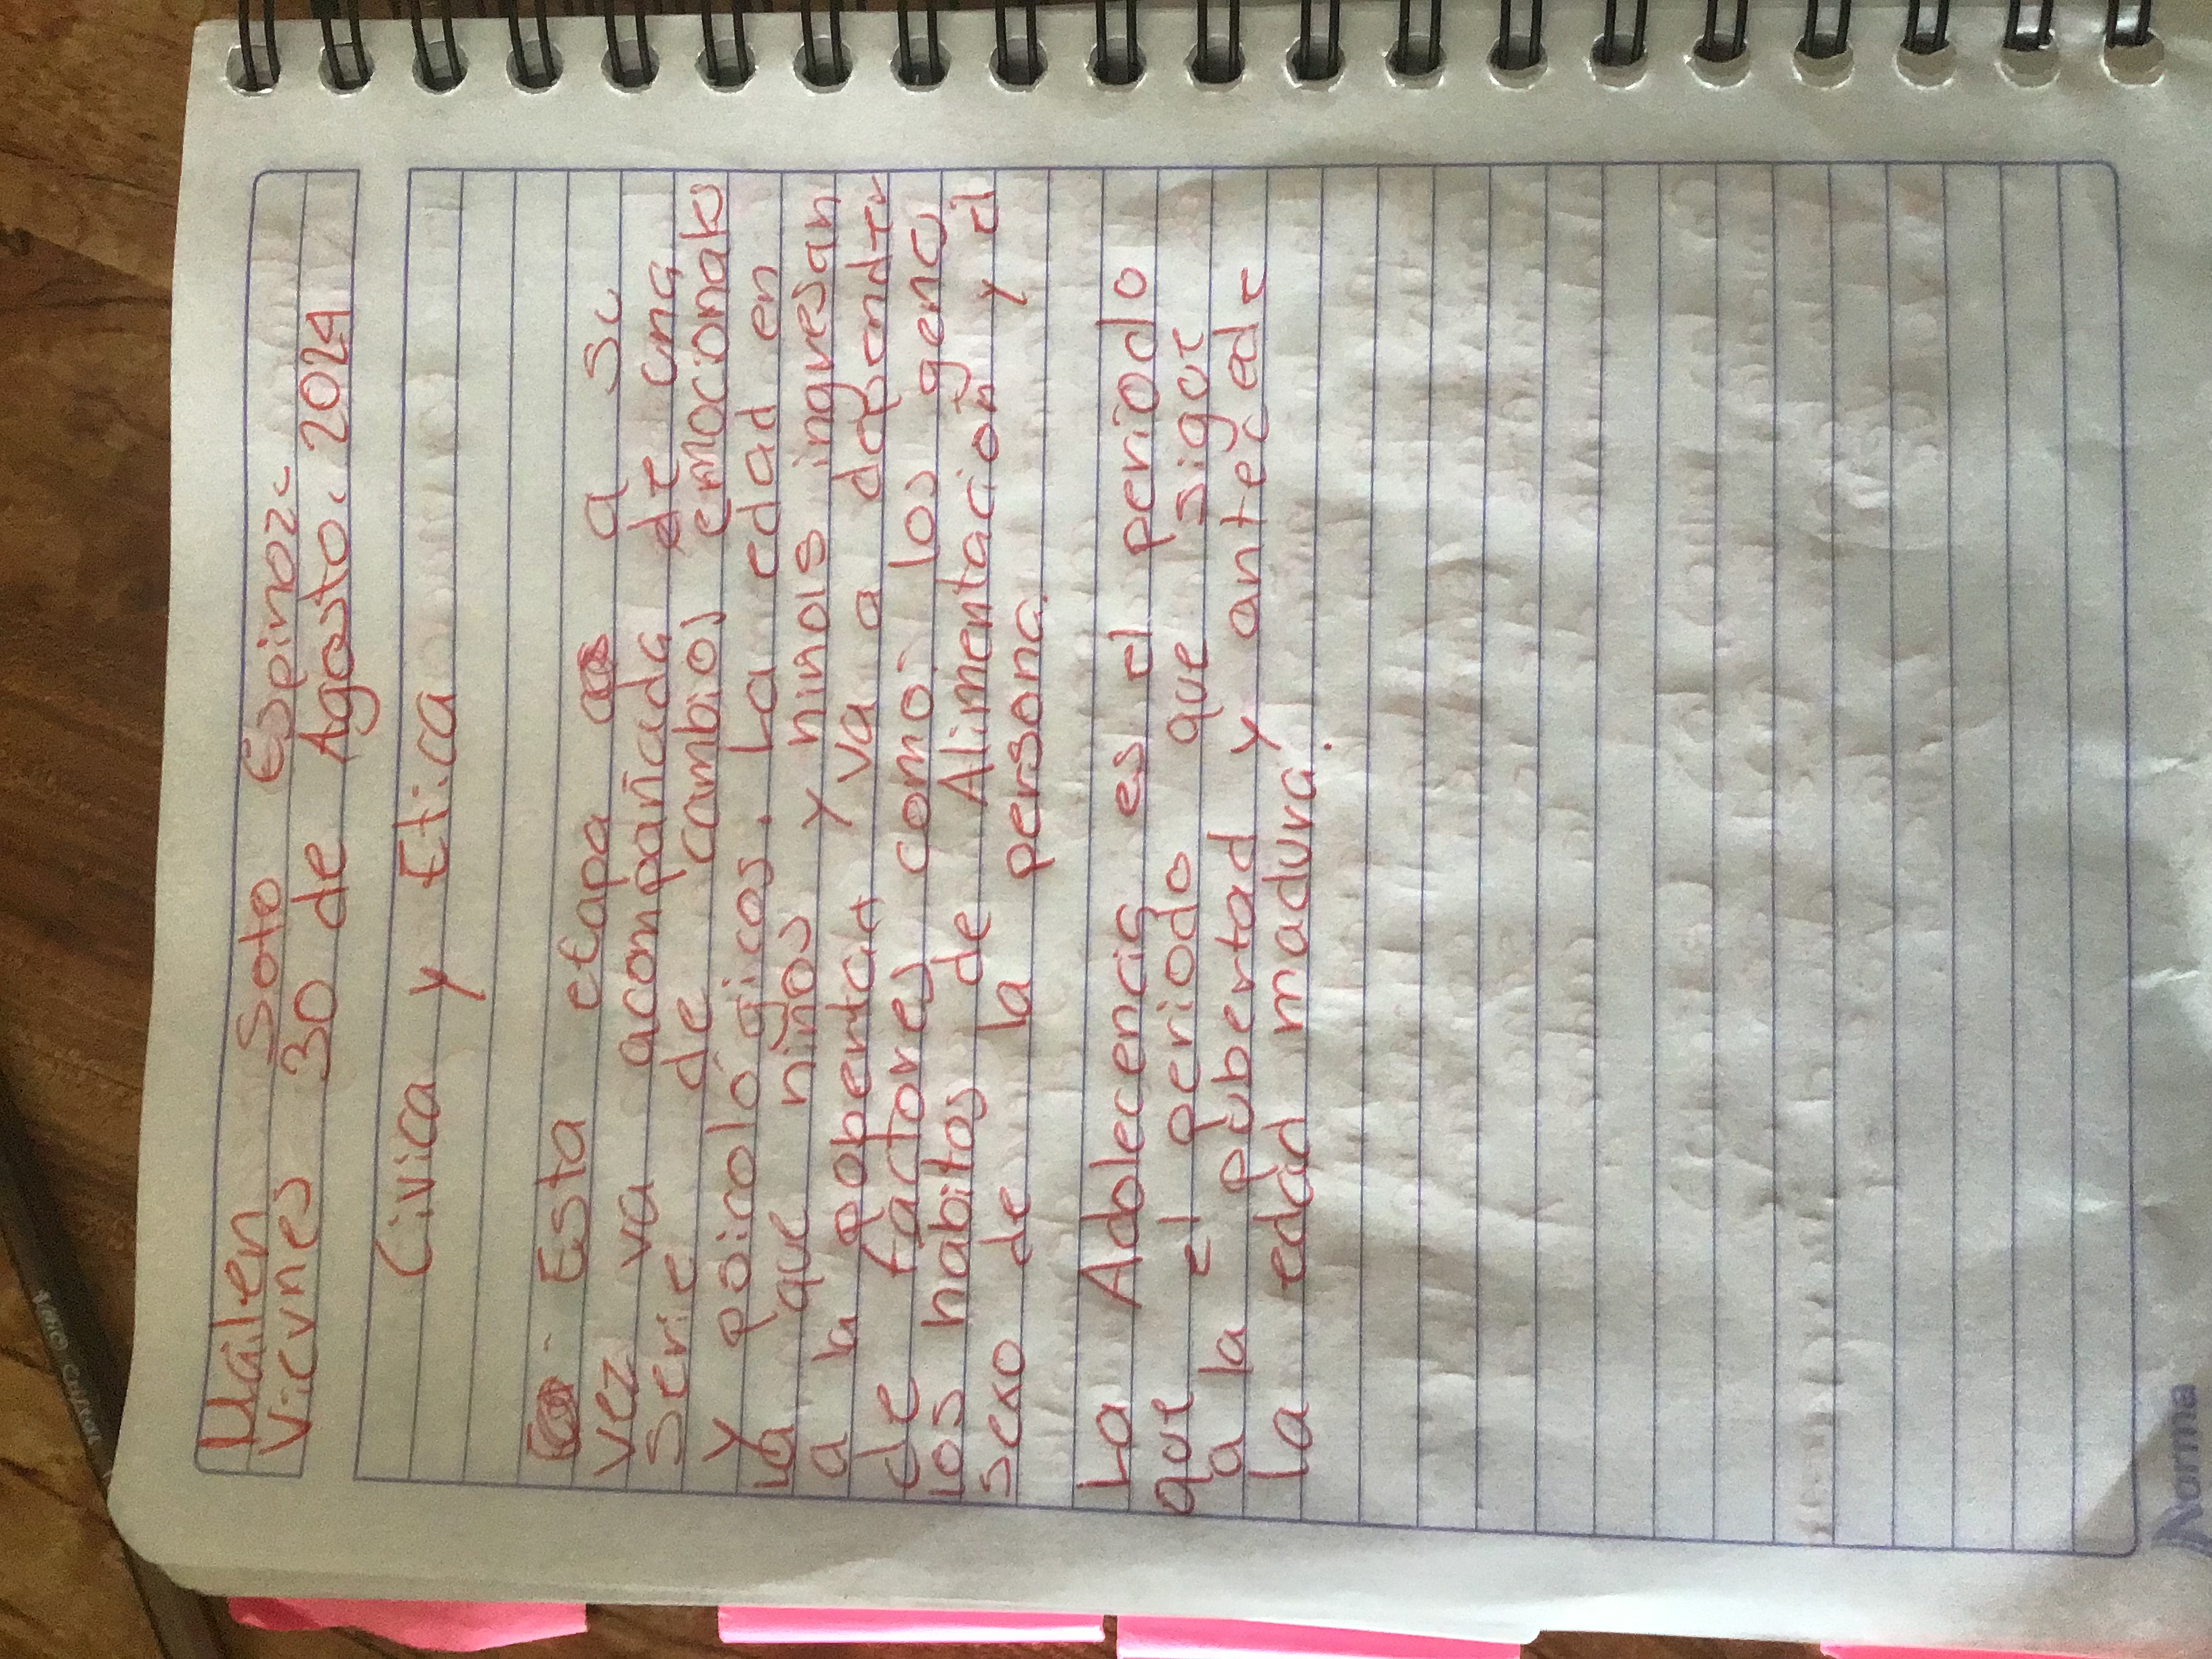 Mailen Soto Espinoza
Viernes 30 de Agosto. 2024
Civica y Etica
Esta etapa a su
vez va acompañada de una
serie de cambios emocionales
y psicológicos. La edad en
la que niños y niños ingresan
a la pobertad y va a depender
de factores como: los genes
los habitos de Alimentación y el
sexo de la persona.
La Adolecencia es el periodo
que el periodo que sigue
a la pubertad y antecede
la edad madura.
Norma